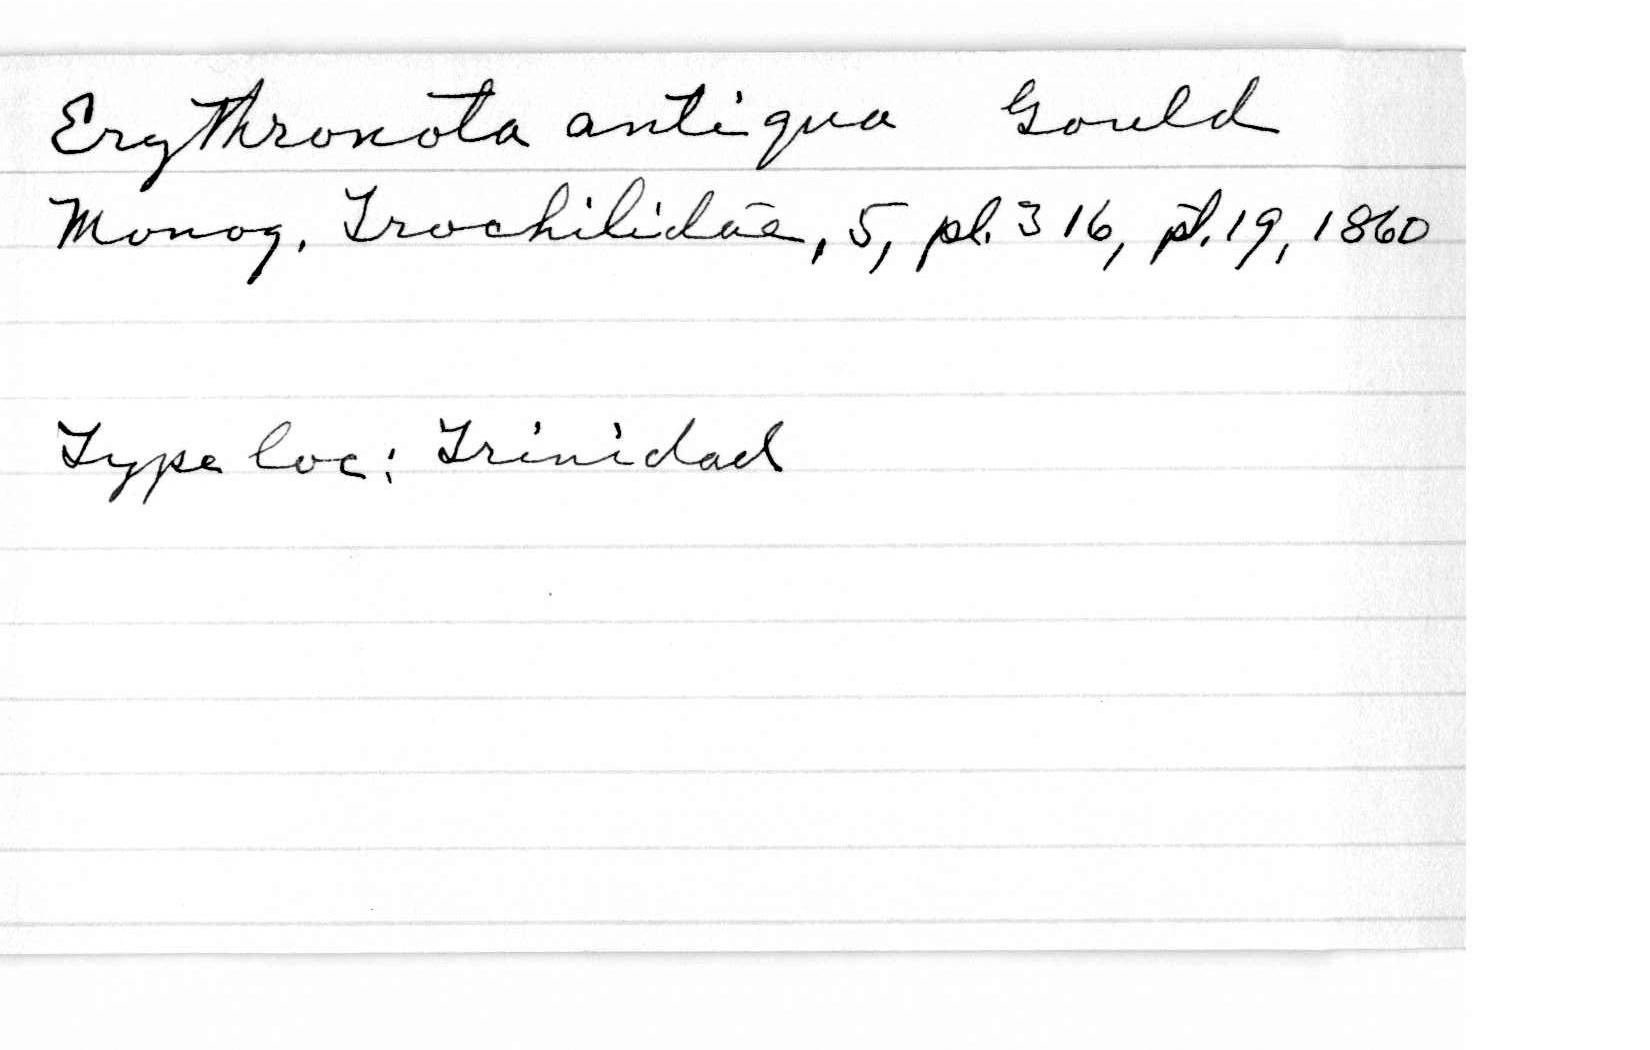 Erythronota antiqua Gould
Monog. Trochilidae, 5, pl. 316, pt. 19, 1860
Type loc: Trinidad